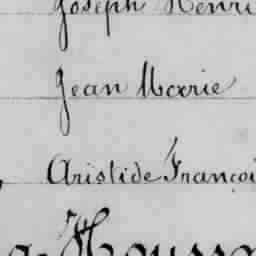 Joseph Henri
Jean Marie
Aristide Françoi